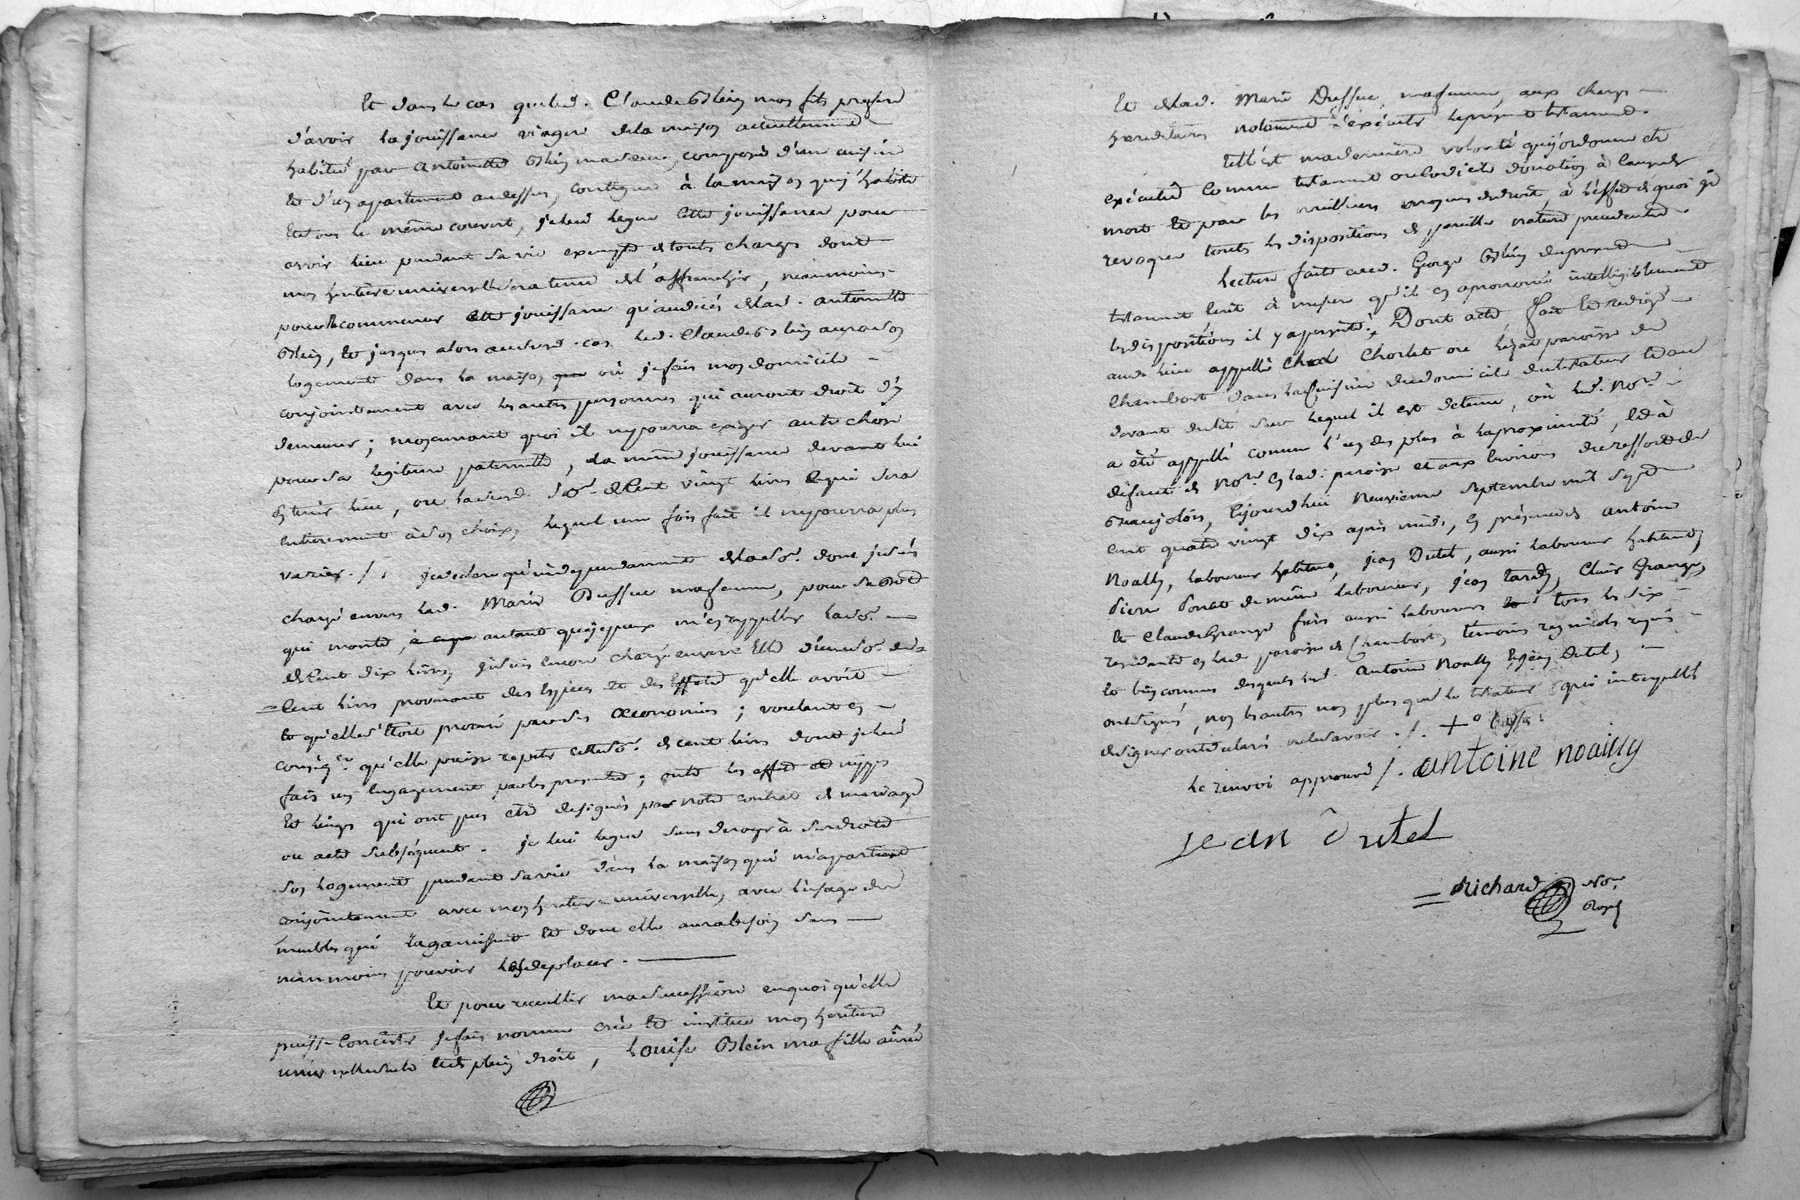 Et dans le cas que led. Claude Blein mon fils prefere
d'avoir la jouissance viagere de la maison actuellement
habitée par antoinette Blein ma sœur, composée d'une cuisine
et d'un apartement au dessus, contigue à la maison que j'habite
et sous le même couvert, je lui legue cette jouissance pour
avoir lieu pendant sa vie exempte de toutes charges dont
mon heritiere universelle sera tenue de l'affranchir, neanmoins
pour ne commencer cette jouissance qu'au décés de lad. antoinette
Blein, et jusques alors audit cas led. Claude Blein aura son
logement dans la maison où je fais mon domicile
conjointement avec les autres personnes qui auront droit d'y
demeurer; moyennant quoi il ne pourra exiger autre chose
pour sa legitime paternelle, la même jouissance devant lui
en tenir lieu, ou lad. se. de cent vingt livres ce qui sera
entierement à son choix, lequel une fois fait il ne pourra plus
varier./. je declare qu'independamment de la se. dont je suis
chargé envers lad. Marie Dussuc ma femme, pour sa dot
qui monte, autant que je peux m'en rappeller la de.
de cent dix livres, je suis encore chargé envers elle d'une se. de
cent livres provenant des especes et des effets qu'elle avoit
et qu'elle s'etoit procuré par ses œconomies; voulant en
conseqce. qu'elle puisse repeter cette se. de cent livres dont je lui
fais un engagement par les presentes; outre les nippes
et linges qui ont pu etre designés par notre contrat de mariage
ou acte subséquent. je lui legue sans deroger à ses droits
son logement pendant sa vie dans la maison qui m'apartient
conjointement avec mon heritiere universelle, avec l'usage des
meubles qui la garnissent et dont elle aura besoin sans
neanmoins pouvoir les deplacer.
Et pour recueillir ma succession en quoi qu'elle
puisse consister je fais nomme crée et institue mon heritiere
universelle et de plein droit, Louise Blein ma fille aînée
et de lad. Marie Dussuc, ma femme, aux charges
hereditaires notamment d'executer le present testament.
Telle est ma derniere volonté que j'ordonne etre
exécutée comme testament ou codicile donation à cause de
mort et par les meilleurs moyens de droit, à l'effet de quoi je
revoque toutes les dispositions de pareille nature precedentes.
Lecture faite aud. George Blein du present
testament écrit à mesure qu'il en a prononcé intelligiblement
les dispositions il y a persisté. Dont acte fait et redigé
aud. lieu appellé Chorlet ou Lézat paroisse de
Chambost dans la cuisine du domicile du testateur et au
devant du lit sur lequel il est detenu, où led. Nore.
a été appellé comme l'un des plus à la proximité, et à
défaut de Nore. en lad. paroisse et aux environs du ressort du
Beaujolois, cejourd'hui neuvieme septembre mil sept
cent quatre vingt dix après midi, en presence de antoine
Noally, laboureur, jean Dutel, aussi laboureur
Pierre de même laboureur, jean tardy, Claude Grange,
et Claude Grange fils aussi laboureurs tous les six
residants en lad. paroisse de Chambost, temoins regnicoles requis
et bien connus desquels led. Antoine Noally et jean Dutel,
ont signé, non les autres non plus que le testateur qui interpellés
de signer ont declaré ne le savoir ./. +
le renvoi approuvé /. antoine noailly
jean Dutel
Richard Nore.
Royal